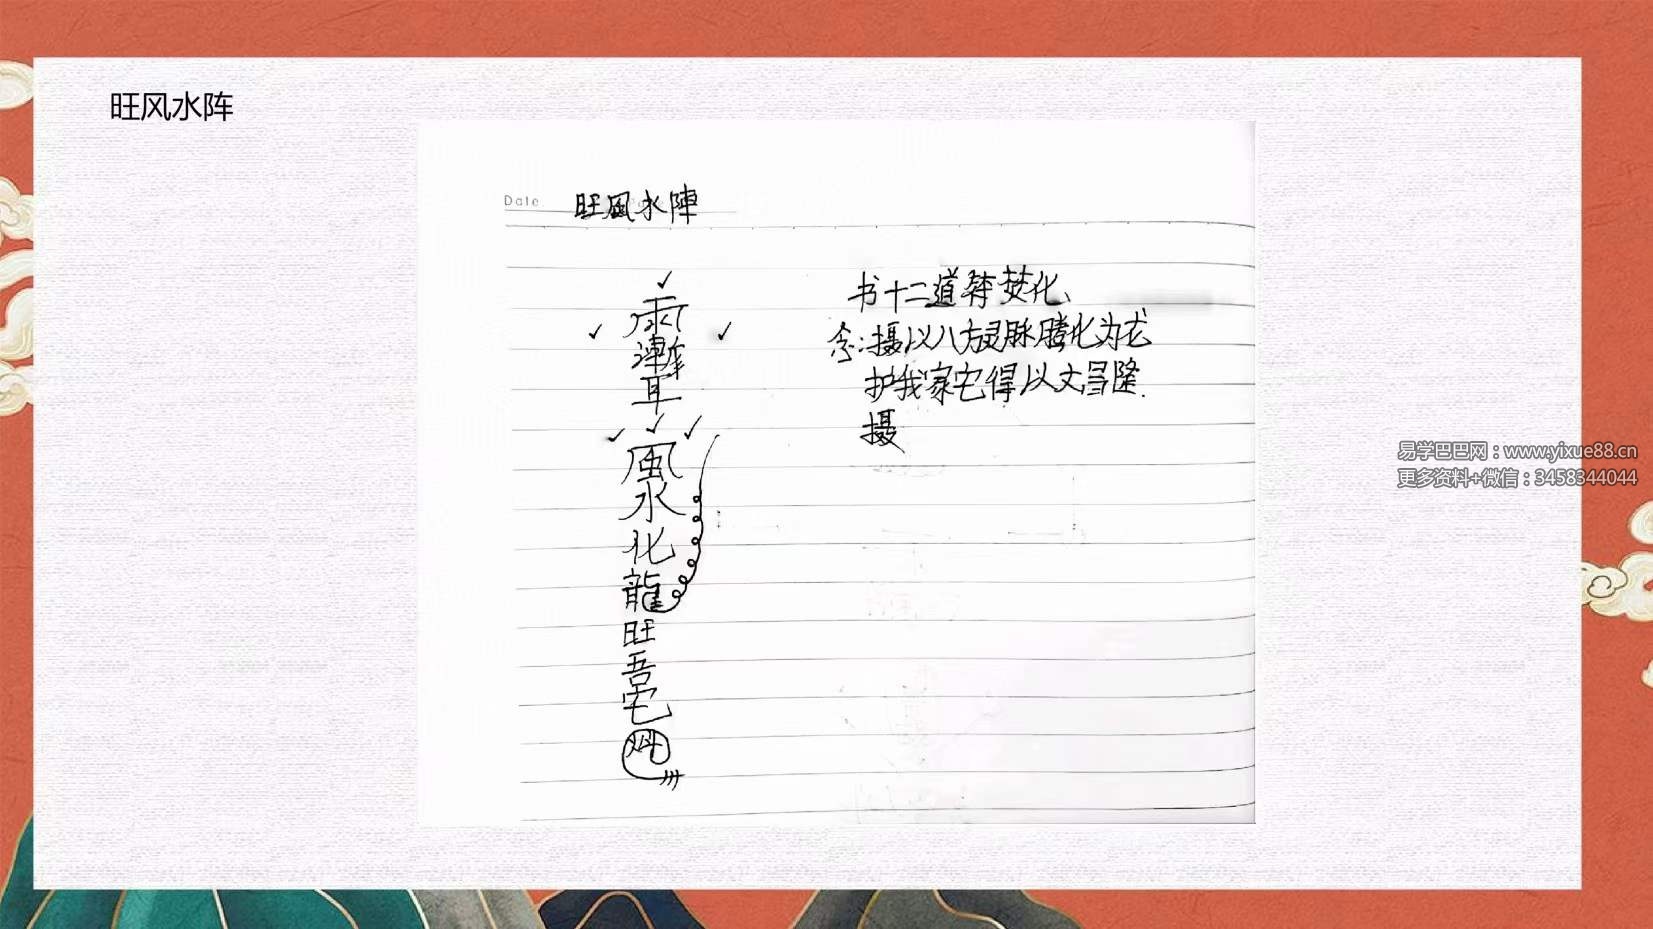 旺风水阵
Date
旺風水陣
書十二道符焚化、
念:摄以八方灵脉腾化为龙
护我家宅得以文昌隆.
摄
耳
風
水
化
龍
旺
吾
宅
易学巴巴网：www.yixue88.cn
更多资料+微信：3458344044